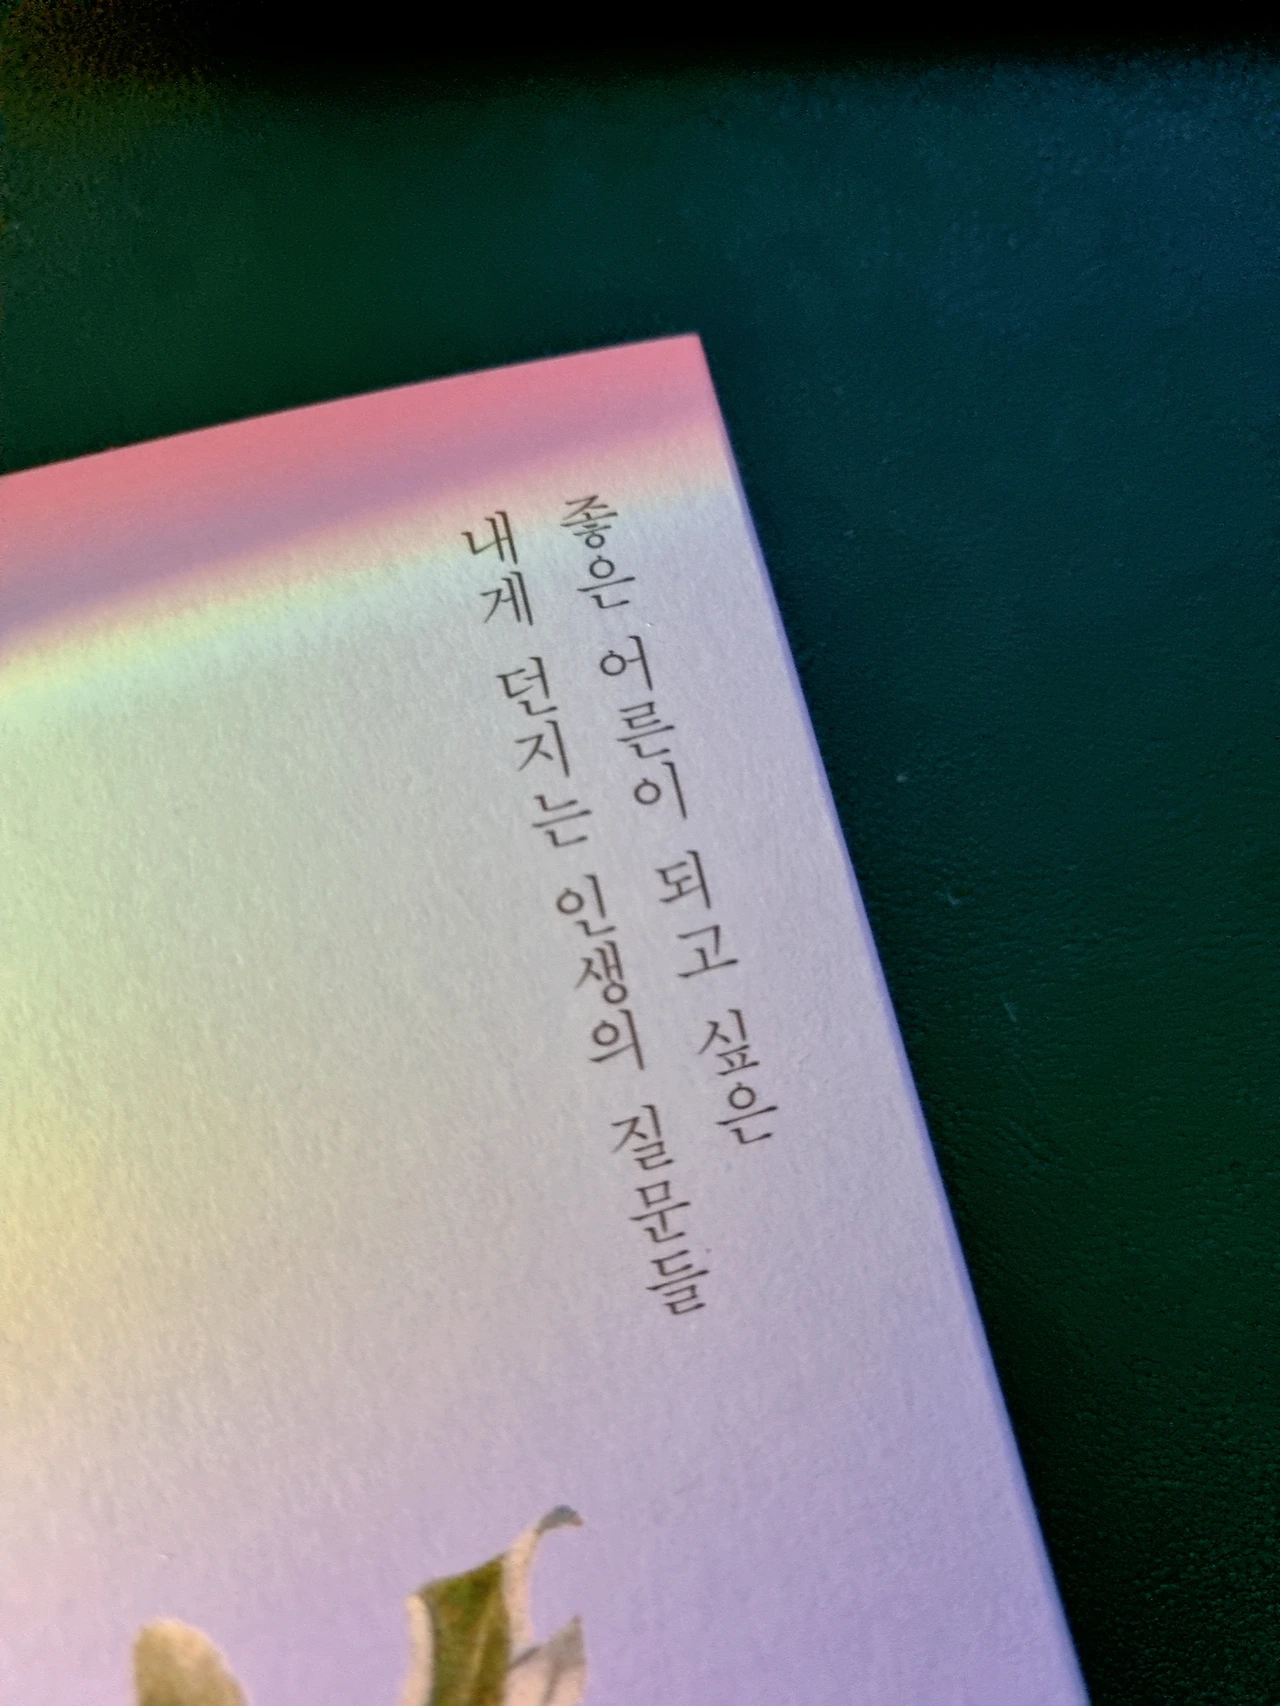 좋은 어른이 되고 싶은
내게 던지는 인생의 질문들